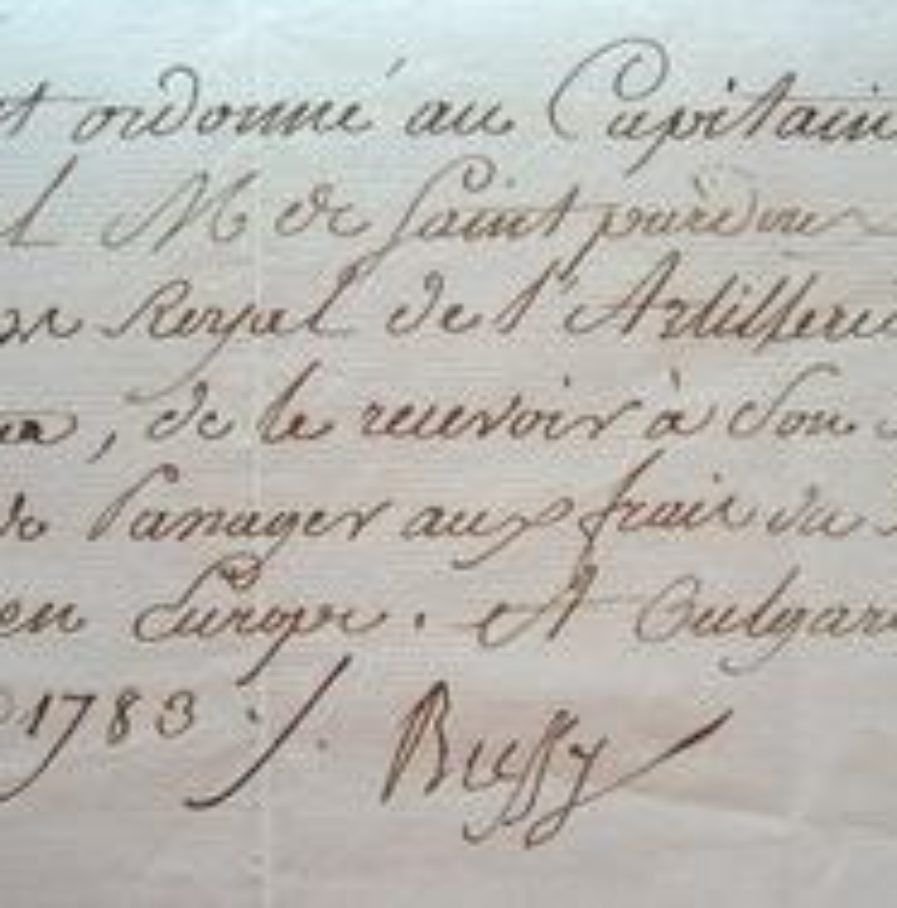 t ordonné au Capitain
l M de Saint pardoux
Royal de l'Artillerie
, de le recevoir à son
de Passager aux frais du
en Europe. A Oulgaré
1783 ./.
Bussy